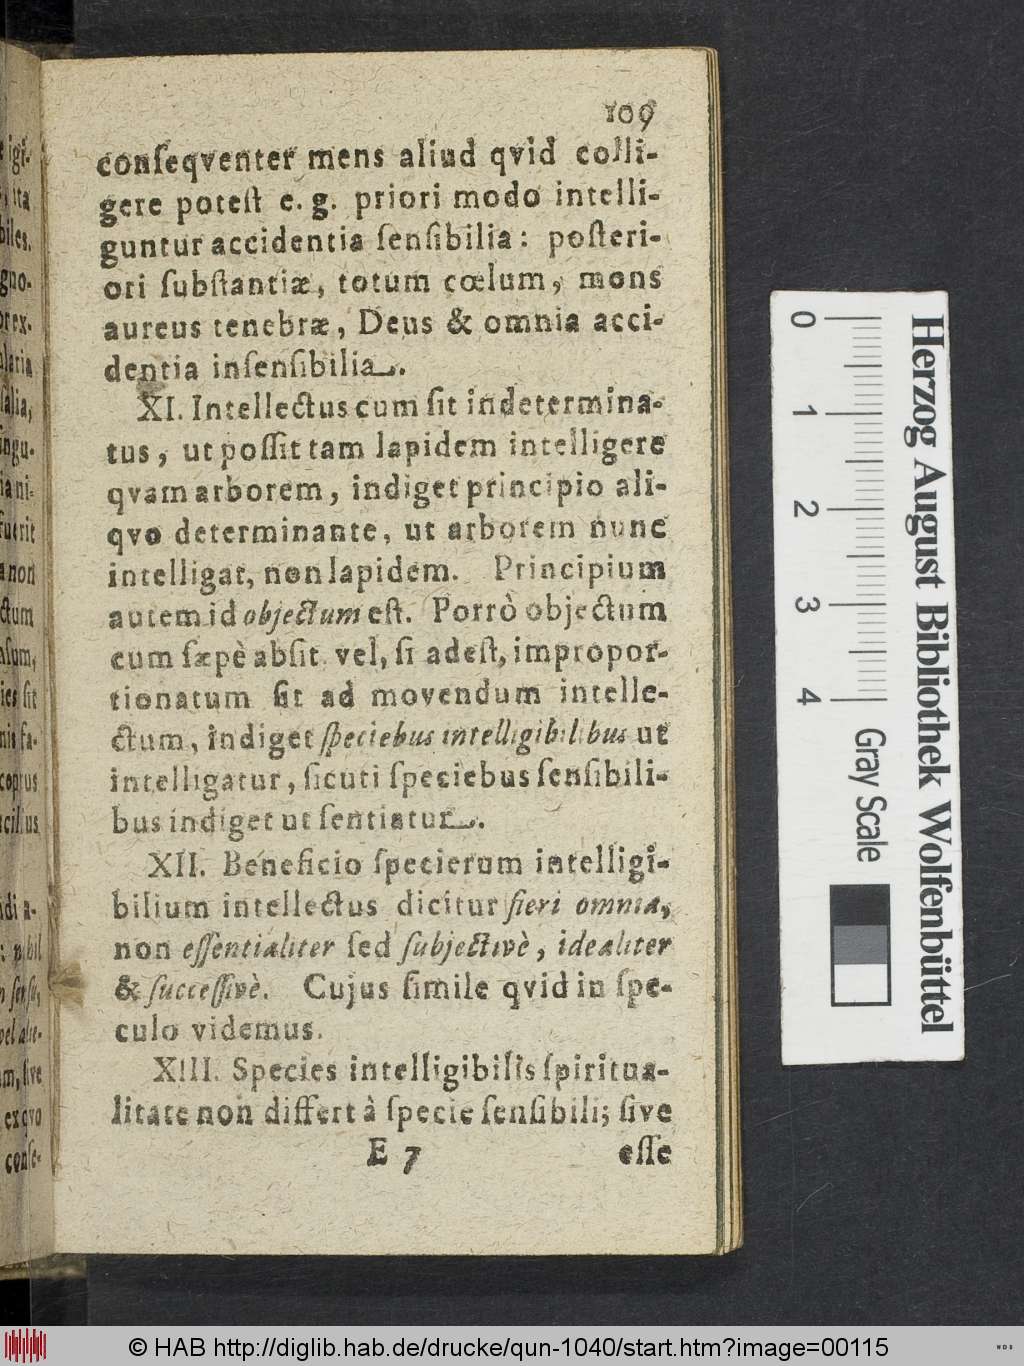 109
conſeqventer mens aliud qvid colli-
gere poteſt e. g. priori modo intelli-
guntur accidentia ſenſibilia: poſteri-
ori ſubſtantiæ, totum cœlum, mons
aureus tenebræ, Deus & omnia acci-
dentia inſenſibilia.
XI. Intellectus cum ſit indetermina-
tus, ut poſſit tam lapidem intelligere
qvam arborem, indiget principio ali-
qvo determinante, ut arborem nunc
intelligat, non lapidem. Principium
autem id objectum eſt. Porrò objectum
cum ſæpè abſit vel, ſi adeſt, impropor-
tionatum ſit ad movendum intelle-
ctum, indiget ſpeciebus intelligibilibus ut
intelligatur, ſicuti ſpeciebus ſenſibili-
bus indiget ut ſentiatur.
XII. Beneficio ſpecierum intelligi-
bilium intellectus dicitur fieri omnia,
non eſſentialiter ſed ſubjectivè, idealiter
& ſucceſſivè. Cujus ſimile qvid in ſpe-
culo videmus.
XIII. Species intelligibilis ſpiritua-
litate non differt à ſpecie ſenſibili; ſive
E 7 eſſe
0 1 2 3 4
Gray Scale
Herzog August Bibliothek Wolfenbüttel
© HAB http://diglib.hab.de/drucke/qun-1040/start.htm?image=00115